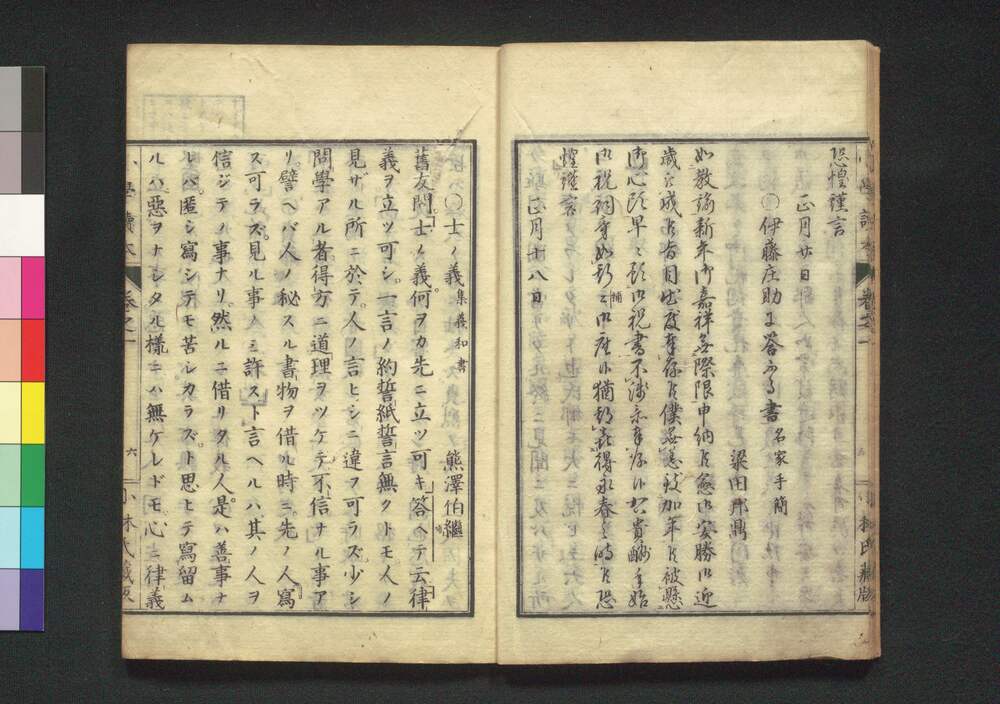 恐惶謹言
正月廿日
○伊藤庄助に答ふる書 名家手簡
梁田邦鼎
如教諭新年御嘉祥無際限申納候愈御安勝御迎
歳被成候旨目出度奉存候僕無恙致加年候被懸
御心頭早々預御祝書不浅忝奉存候
猶期永春之時候恐
惶謹言
正月十八日
小學讀本 巻之一 六 小林氏藏版
○士ノ義 集義和書
熊澤伯繼
舊友問。士ノ義。何ヲカ先ニ立ツ可キ」答ヘテ云」律
義ヲ立ツ可シ。一言ノ約誓」紙誓」言無クトモ。人ノ
見ザル所ニ於テ。人ノ言ヒシニ違フ可ラズ。少シ
問學アル者得方ニ道理ヲツケテ。不信ナル事ア
リ。譬ヘバ人ノ秘スル書物ヲ借ル時ニ。先ノ人『寫
ス可ラズ。見ル事ノミ許スト言ヘルハ其ノ人ヲ
信ジテノ事ナリ。然ルニ借リタル人。是ハ善事ナ
レバ。匿シ寫シテモ苦シカラズ。ト思ヒテ寫留ム
ルハ。惡ヲナシタル様ニハ無ケレドモ。心ニ律義